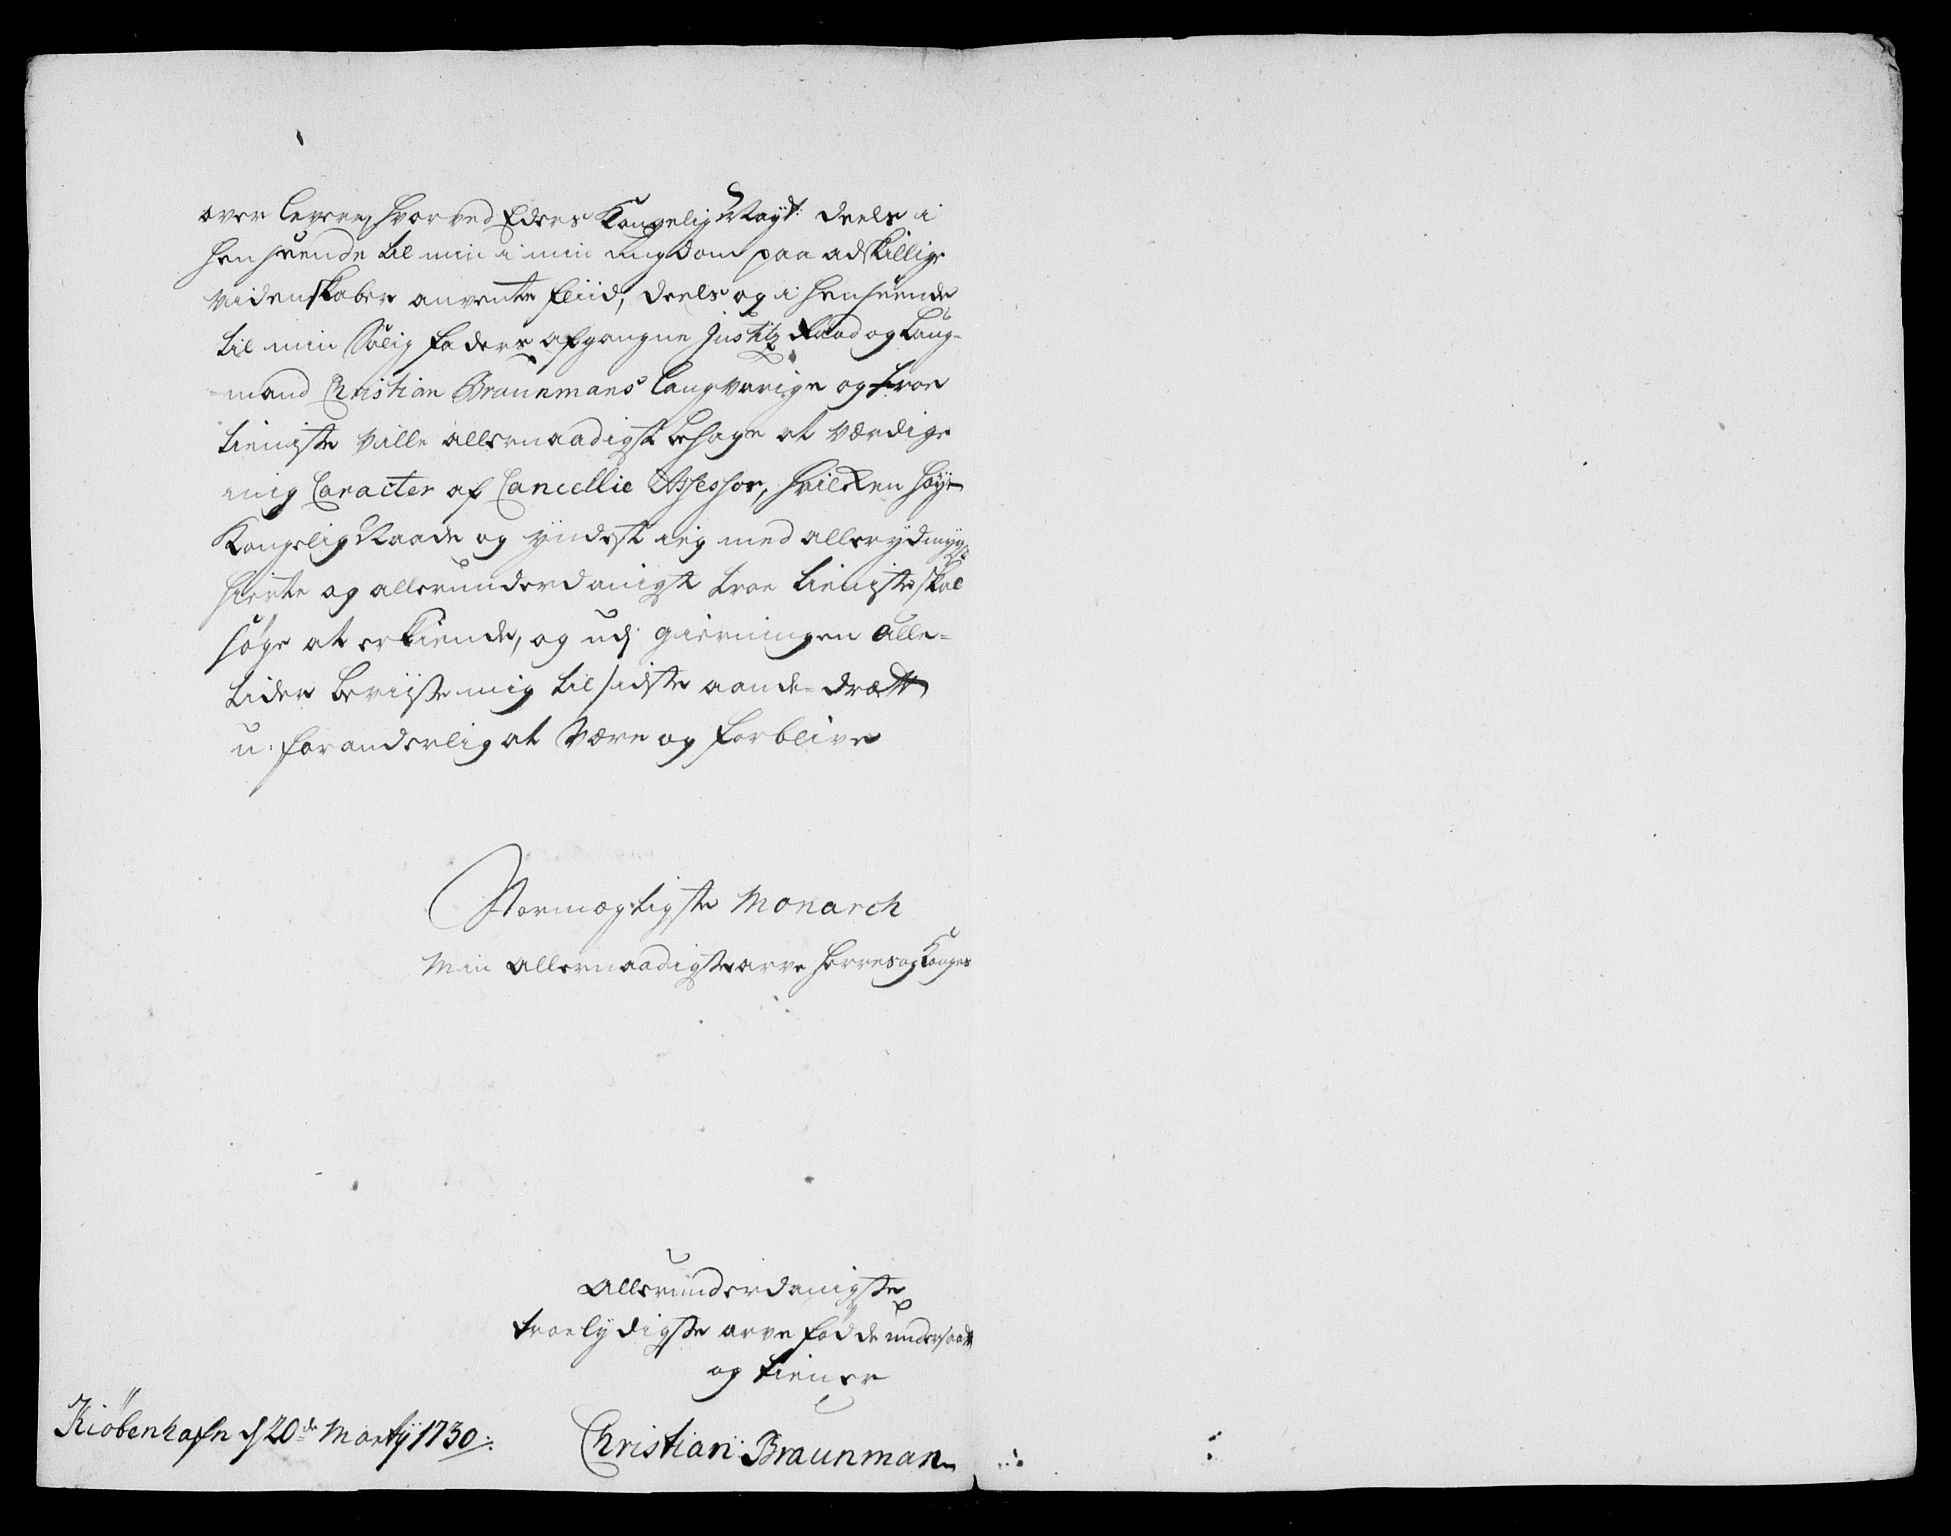 over levere, hvorved Eders Kongelig Mayt: deels i
henseende til min i min ungdom paa adskillige
videnskaber anvente fliid, deels og i henseende
til min Salig faders afgangne Justitz Raad og Laug-
-mand Christian Braunmans langvarige og troe
tieniste ville allernaadigst behage at værdige
mig Caracter af Cancellie Assessor, hvilken høye
Kongelig Naade og yndest ieg med allerydmygst
hierte og allerunderdanigst troe tieniste skal
søge at erkiende, og udj gierningen alle-
tider beviiste mig til sidste aande-drætt
u-foranderlig at være og forblive
Stormægtigste Monarch
Min allernaadigste arve herres og Konges
Allerunderdanigste
troelydigste arve fødde undersaatt
og tiener
Kiøbenhafn d 20de Martij 1730.
Christian Braunman